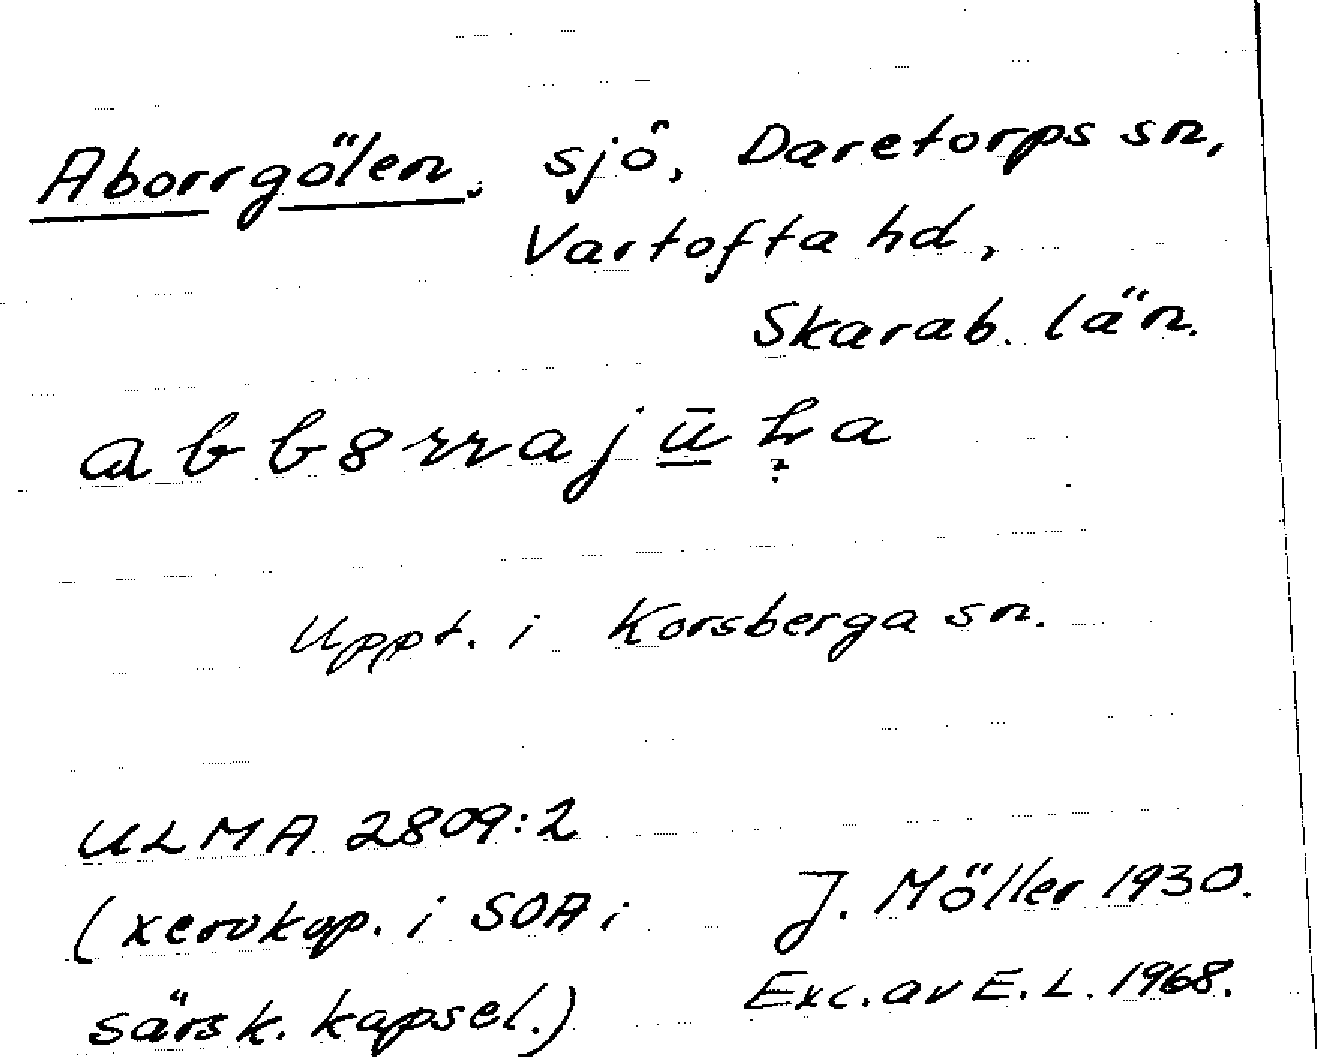 Aborrgölen, sjö, Daretorps sn,
Vartofta hd,
Skarab. län.
Uppt. i Korsberga sn.
ULMA 2809:2
(xerokop. i SOA i
särsk. kapsel.)
J. Möller 1930.
Exc. av E. L. 1968.